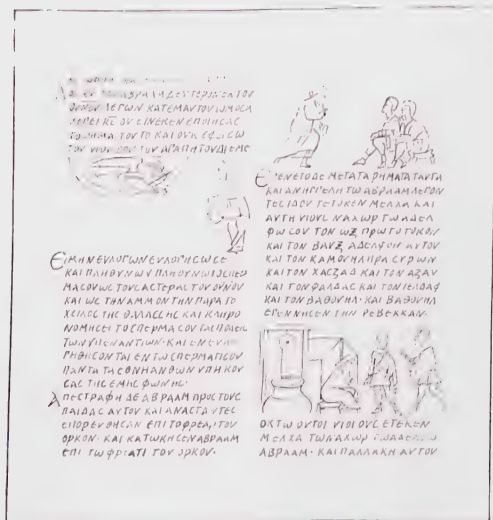 ΑΒΡΑΑΜ ΔΕΥΤΕΡΟΝ ΕΚ ΤΟΥ
ΟΥΝΟΥ ΛΕΓΩΝ ΚΑΤΕΜΑΥΤΟΥ ΩΜΟCΑ
ΛΕΓΕΙ ΚC ΟΥ ΕΙΝΕΚΕΝ ΕΠΟΙΗCΑC
ΤΟ ΡΗΜΑ ΤΟΥΤΟ ΚΑΙ ΟΥΚ ΕΦΙCΩ
ΤΟΥ ΥΙΟΥ CΟΥ ΤΟΥ ΑΓΑΠΗΤΟΥ ΔΙ ΕΜΕ
ΕΙ ΜΗΝ ΕΥΛΟΓΩΝ ΕΥΛΟΓΗCΩ CΕ
ΚΑΙ ΠΛΗΘΥΝΩΝ ΠΛΗΘΥΝΩ ΤΟ CΠΕΡ
ΜΑ CΟΥ ΩC ΤΟΥC ΑCΤΕΡΑC ΤΟΥ ΟΥΝΟΥ
ΚΑΙ ΩC ΤΗΝ ΑΜΜΟΝ ΤΗΝ ΠΑΡΑ ΤΟ
ΧΕΙΛΟC ΤΗC ΘΑΛΑCCΗC ΚΑΙ ΚΛΗΡΟ
ΝΟΜΗCΕΙ ΤΟ CΠΕΡΜΑ CΟΥ ΤΑC ΠΟΛΕΙC
ΤΩΝ ΥΠΕΝΑΝΤΙΩΝ · ΚΑΙ ΕΝΕΥΛΟ
ΓΗΘΗCΟΝΤΑΙ ΕΝ ΤΩ CΠΕΡΜΑΤΙ CΟΥ
ΠΑΝΤΑ ΤΑ ΕΘΝΗ ΑΝΘΩΝ ΥΠΗΚΟΥ
CΑC ΤΗC ΕΜΗC ΦΩΝΗC ·
ΑΠΕCΤΡΑΦΗ ΔΕ ΑΒΡΑΑΜ ΠΡΟC ΤΟΥC
ΠΑΙΔΑC ΑΥΤΟΥ ΚΑΙ ΑΝΑCΤΑΝΤΕC
ΕΠΟΡΕΥΘΗCΑΝ ΕΠΙ ΤΟ ΦΡΕΑΡ ΤΟΥ
ΟΡΚΟΥ · ΚΑΙ ΚΑΤΩΚΗCΕΝ ΑΒΡΑΑΜ
ΕΠΙ ΤΩ ΦΡΙΑΤΙ ΤΟΥ ΟΡΚΟΥ ·
ΕΓΕΝΕΤΟ ΔΕ ΜΕΤΑ ΤΑ ΡΗΜΑΤΑ ΤΑΥΤΑ
ΚΑΙ ΑΝΗΓΓΕΛΗ ΤΩ ΑΒΡΑΑΜ ΛΕΓΟΝ
ΤΕC ΙΔΟΥ ΤΕΤΟΚΕΝ ΜΕΛΧΑ ΚΑΙ
ΑΥΤΗ ΥΙΟΥC ΝΑΧΩΡ ΤΩ ΑΔΕΛ
ΦΩ CΟΥ ΤΟΝ ΩΞ ΠΡΩΤΟΤΟΚΟΝ
ΚΑΙ ΤΟΝ ΒΑΥΞ ΑΔΕΛΦΟΝ ΑΥΤΟΥ
ΚΑΙ ΤΟΝ ΚΑΜΟΥΗΛ ΠΡΑ CΥΡΩΝ
ΚΑΙ ΤΟΝ ΧΑCΖΑΔ ΚΑΙ ΤΟΝ ΑΖΑΥ
ΚΑΙ ΤΟΝ ΦΑΛΔΑC ΚΑΙ ΤΟΝ ΙΕΛΔΑΦ
ΚΑΙ ΤΟΝ ΒΑΘΟΥΗΛ · ΚΑΙ ΒΑΘΟΥΗΛ
ΕΓΕΝΝΗCΕΝ ΤΗΝ ΡΕΒΕΚΚΑΝ ·
ΟΚΤΩ ΟΥΤΟΙ ΥΙΟΙ ΟΥC ΕΤΕΚΕΝ
ΜΕΛΧΑ ΤΩ ΝΑΧΩΡ ΤΩ ΑΔΕΛΦΩ
ΑΒΡΑΑΜ · ΚΑΙ ΠΑΛΛΑΚΗ ΑΥΤΟΥ